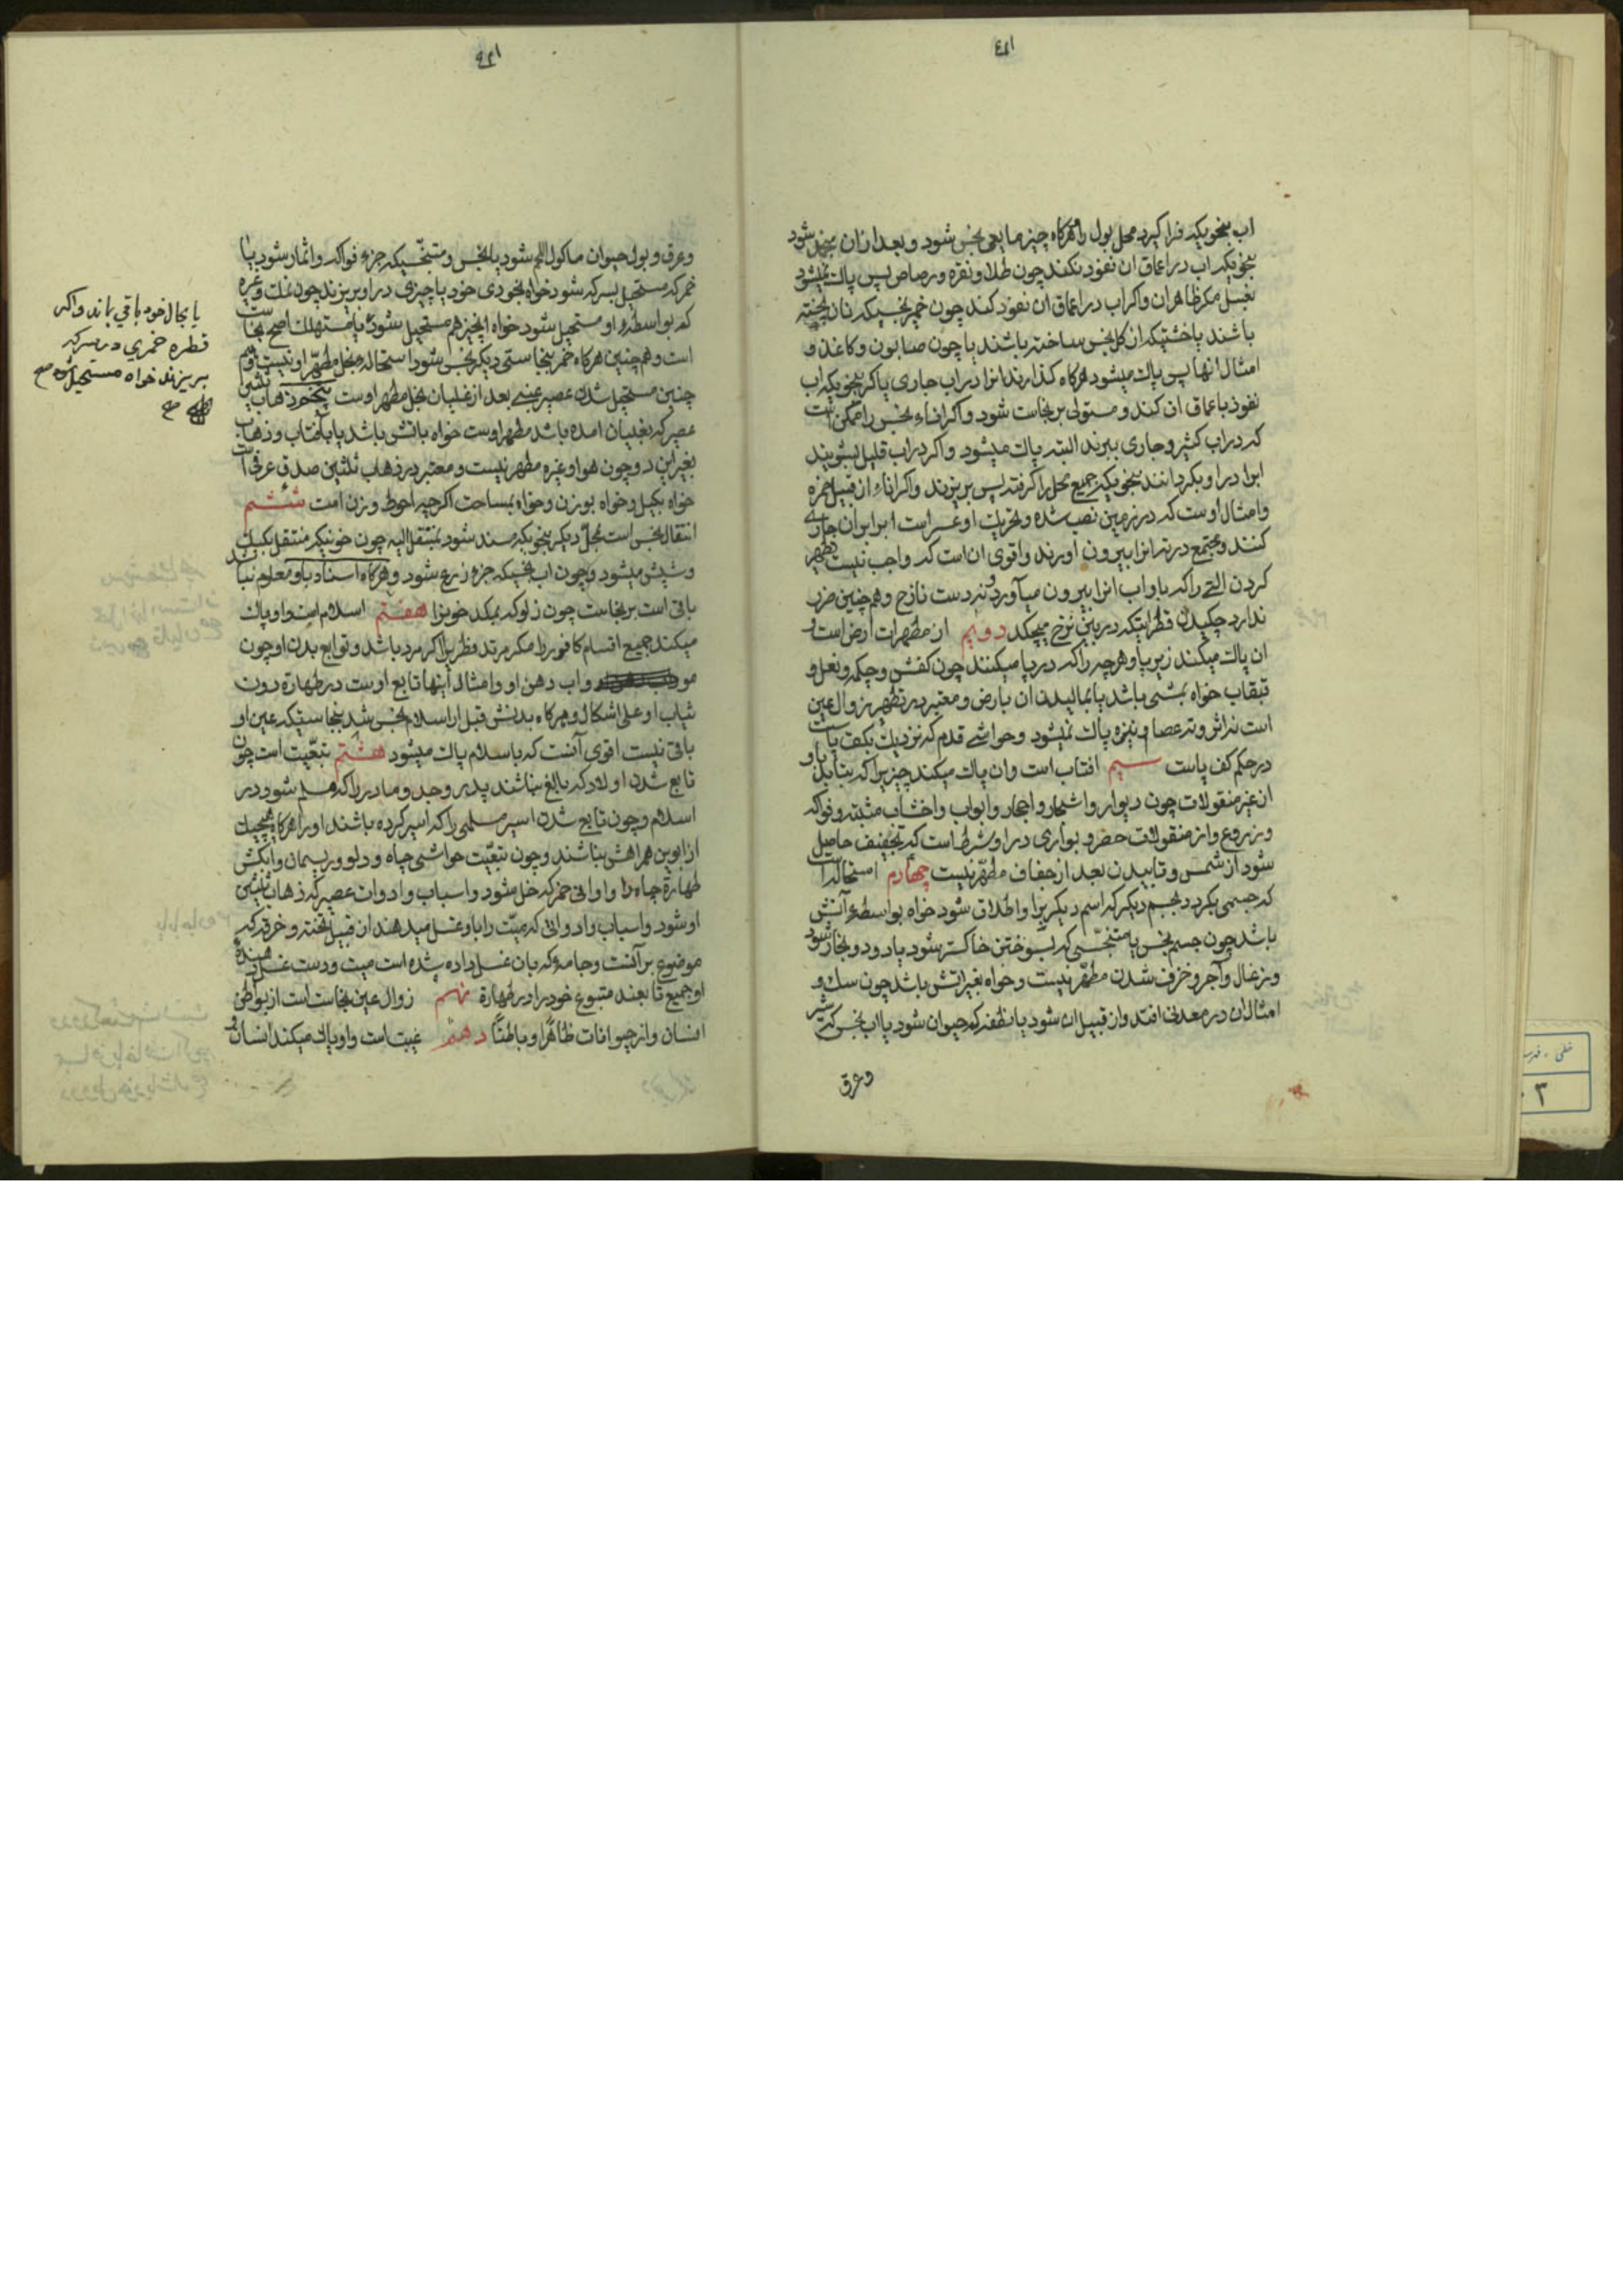 اب بنحویکه فرا گیرد محل بول را و هرگاه چیز مایعی نجس شود و بعد از ان منجمد شود
بنحویکه اب در اعماق ان نفوذ نکند چون طلا و نقره و رصاص پس پاک نمیشود
بغسل مگر ظاهر ان و اگر اب در اعماق ان نفوذ کند چون خمیر نجسیکه نان پخته
باشند یا خشتیکه از گل نجس ساخته باشند یا چون صابون و کاغذ و
امثال انها پس پاک میشود هرگاه گذارند انرا در اب جاری یا کر بنحویکه اب
نفوذ باعماق ان کند و مستولی بر نجاست شود و اگر اناء نجس را ممکن است
که در اب کثیر و جاری ببرند البته پاک میشود و اگر در اب قلیل بشویند
ابرا در او بگردانند بنحویکه جمیع محل را گرفته پس بریزند و اگر اناء از قبیل خمره
و امثال اوست که در زمین نصب شده و تحریک او عسر است ابرا بر ان جاری
کنند و مجتمع در ته انرا بیرون اورند و اقوی ان است که واجب نیست تطهیر
کردن التی را که با او اب انرا بیرون میآورد و نه دست نازح و همچنین ضرر
ندارد چکیدن قطراتیکه در بین نزح میچکد دویم از مطهرات ارض است و
ان پاک میکند زیر پا و هر چه را که در پا میکنند چون کفش و چکمه و نعل و
قبقاب خواه بمشی باشد یا بمالیدن ان بارض و معتبر در تطهیر زوال عین
است نه اثر و ته عصا و نیزه پاک نمیشود و حواشی قدم که نزدیک بکف پاست
در حکم کف پاست سیم افتاب است و ان پاک میکند چیزیرا که بتابد باو
از غیر منقولات چون دیوار و اشجار و احجار و ابواب و اخشاب مثبته و فواکه
و زروع و از منقولات حصر و بواری در او شرط است که تجفیف حاصل
شود از شمس و تابیدن بعد از جفاف مطهر نیست چهارم استحاله است
که جسمی بگردد بجسم دیگر که اسم دیگر برا و اطلاق شود خواه بواسطهء آتش
باشد چون جسم نجس یا متنجسی که بسوختن خاکستر شود یا دود و بخار شود
و زغال و آجر و خزف شدن مطهر نیست و خواه بغیر اتش باشد چون سک و
امثال ان در معدنی افتد و از قبیل ان شود یا نطفه که حیوان شود یا اب نجس که شیر
وعرق
وعرق و بول حیوان ماکول اللحم شود یا نجس و متنجسیکه جزء فواکه و اثمار شود یا
خمر که مستحیل بسرکه شود خواه بخودی خود یا چیزی در او بریزند چون نمک و غیره
که بواسطهء او مستحیل شود خواه انچیز هم مستحیل شود یا مستهلک اصح نجاست
است و همچنین هرگاه خمر بنجاستی دیگر نجس شود استحاله بخل مطهر او نیست و هم
چنین مستحیل شدن عصیر عنبی بعد از غلیان بخل مطهر اوست پنجم ذهاب ثلثین
عصیر که بغلیان امده باشد مطهر اوست خواه باتش باشد یا بآفتاب و ذهاب
بغیر این دو چون هوا و غیره مطهر نیست و معتبر در ذهاب ثلثین صدق عرفی است
خواه بکیل و خواه بوزن و خواه بمساحت اگرچه احوط وزن است ششم
انتقال نجس است بمحل دیگر بنحویکه مسند شود بمنتقل الیه چون خونیکه منتقل بکیک
و شپش میشود و چون اب نجسیکه جزء زرع شود و هرگاه اسناد باو معلوم نباشد
باقی است بر نجاست چون زلو که بمکد خونرا هفتم اسلام است و او پاک
میکند جمیع اقسام کافر را مگر مرتد فطریرا اگر مرد باشد و توابع بدن او چون
مو و اب دهن او و امثال اینها تابع اوست در طهارة دون
ثیاب او علی اشکال و هرگاه بدنش قبل از اسلام نجس شد بنجاستیکه عین او
باقی نیست اقوی آنست که باسلام پاک میشود هشتم تبعیت است چون
تابع شدن اولاد که بالغ نباشند پدر و جد و مادر را که مسلم شود در
اسلام و چون تابع شدن اسیر مسلمی را که اسیر کرده باشند او را هرگاه هیچیک
از ابوین همراهش نباشند و چون تبعیت حواشی چاه و دلو و ریسمان و آبکش
طهارة چاه را و اوانی خمر که خل شود و اسباب و ادوات عصیر که ذهاب ثلثین
او شود و اسباب و ادواتی که میت را باو غسل میدهند از قبیل تخته و خرقه که
موضوع بر آنست و جامهء که بان غسل داده شده است میت و دست غسل دهنده
او جمیع تابعند متبوع خود را در طهارة نهم زوال عین نجاست است از بواطن
انسان و از حیوانات ظاهرا و باطنا دهم غیبت است و او پاک میکند انسان و
یا بحال خود باقی باند و اگر
قطره خمری در سرکه
بریزند خواه مستحیل شود